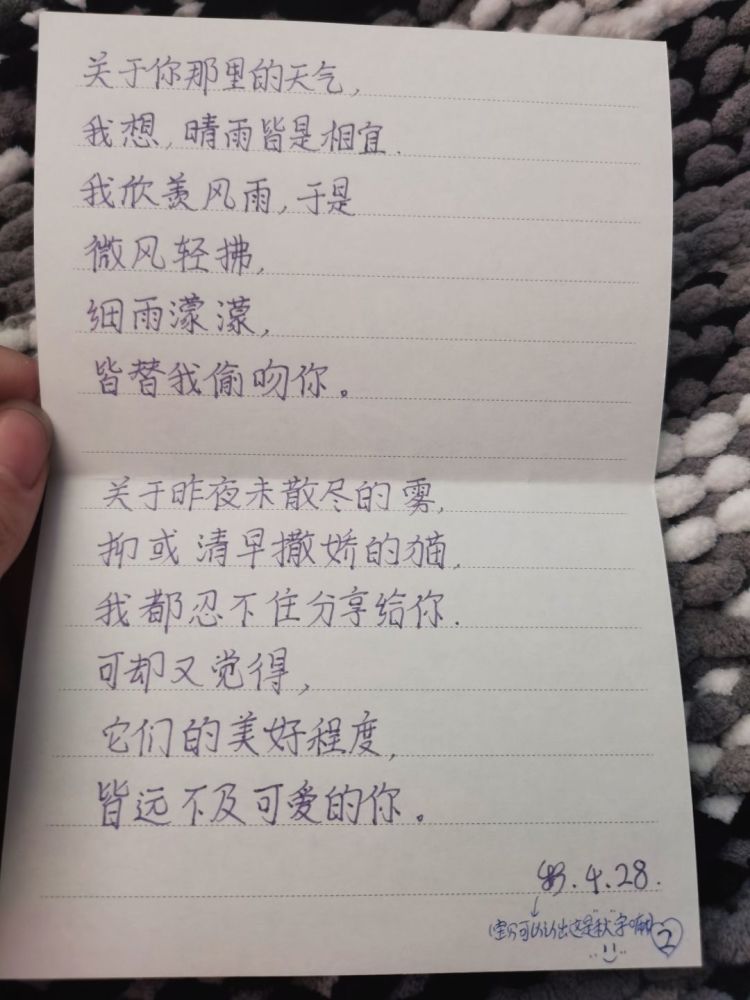 关于你那里的天气,
我想,晴雨皆是相宜.
我欣羡风雨,于是
微风轻拂,
细雨濛濛,
皆替我偷吻你。
关于昨夜未散尽的雾,
抑或清早撒娇的猫,
我都忍不住分享给你.
可却又觉得,
它们的美好程度,
皆远不及可爱的你。
4.28.
可以认出这是秋字嘛
2